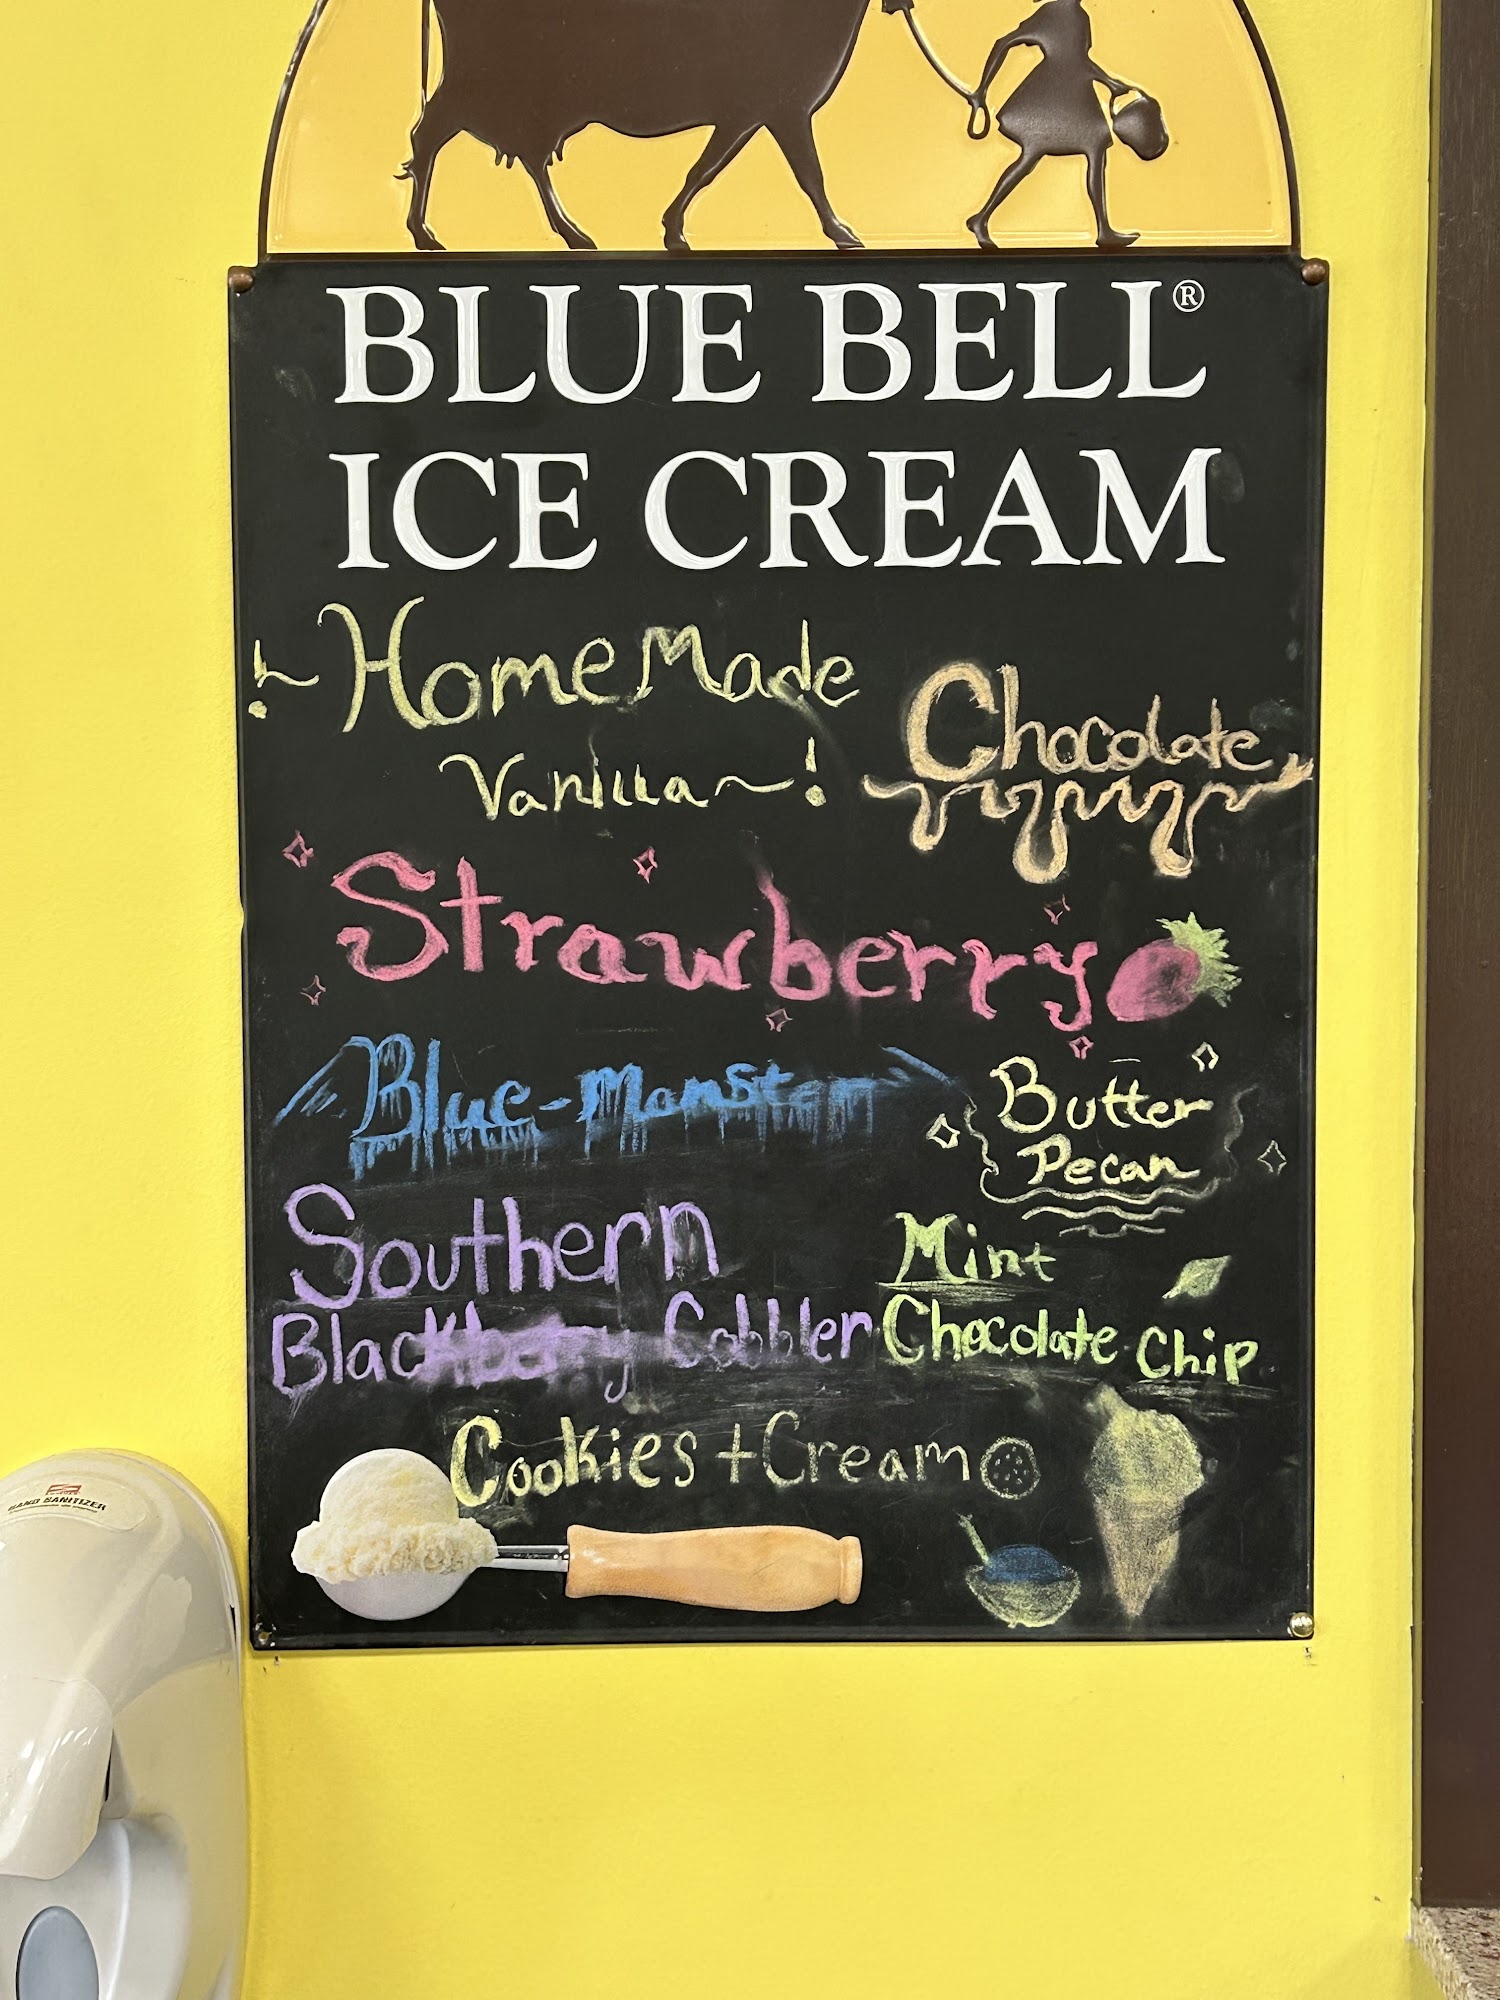 BLUE BELL®
ICE CREAM
! HomeMade
Vanilla ~ !
Chocolate
Strawberry
Blue-Monster
Butter
Pecan
Southern
Blackberry Cobbler
Mint
Chocolate Chip
Cookies + Cream
HAND SANITIZER